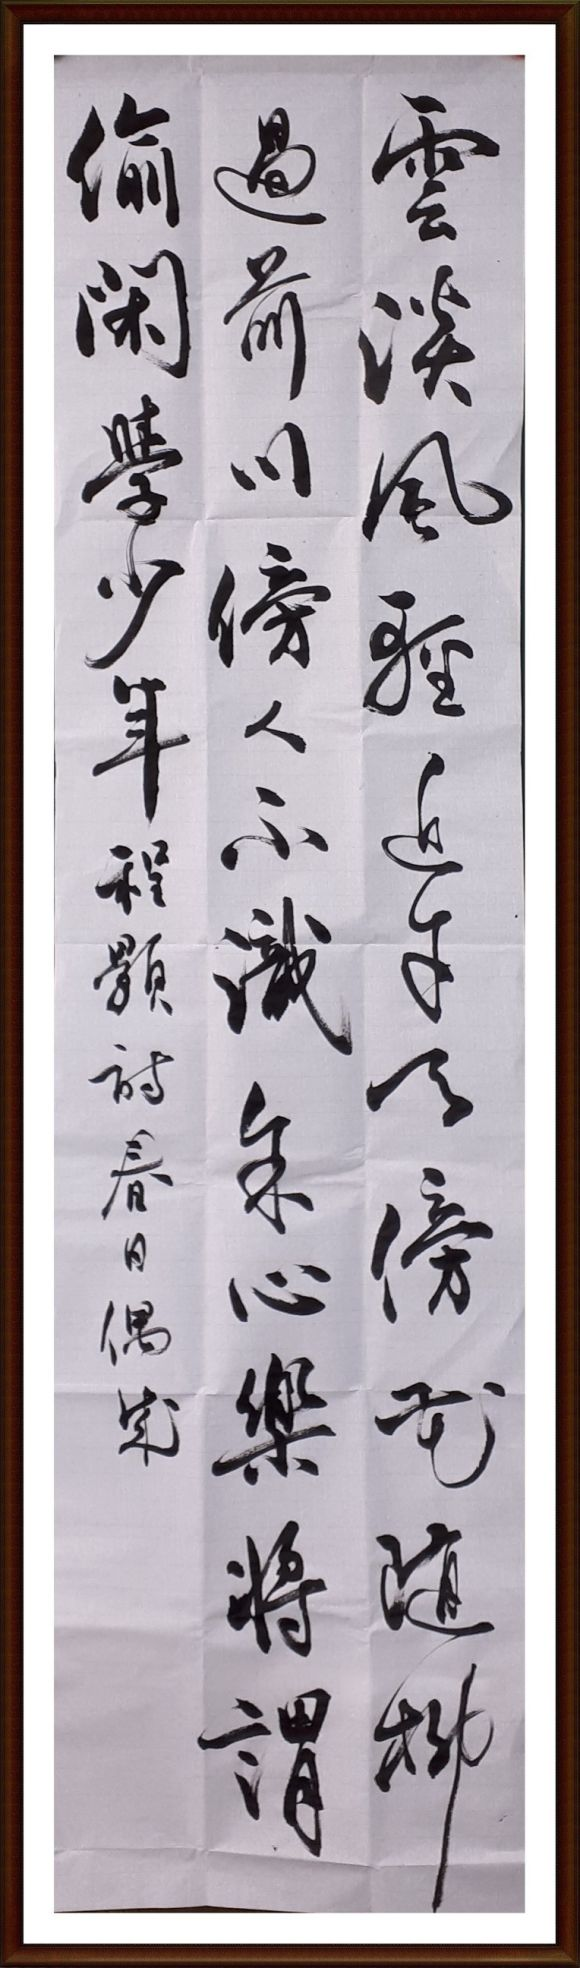 雲淡風輕近午天傍花随柳
過前川傍人不識余心樂將謂
偷閑學少年程顥詩春日偶成